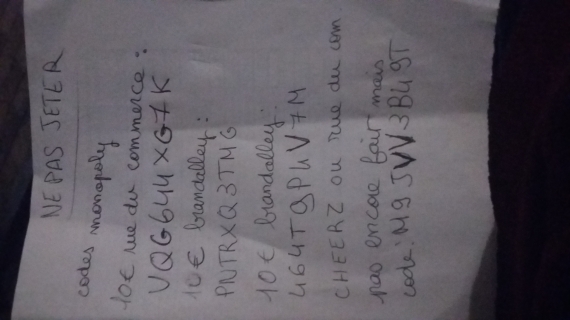 NE PAS JETER
codes monopoly
10€ rue du commerce :
VQG644XG7K
10€ brandalley :
PNTRXQ3TMG
10€ brandalley :
464T9P4V7M
CHEERZ ou rue du com
pas encore fait mais
code: M9JVV3B49T